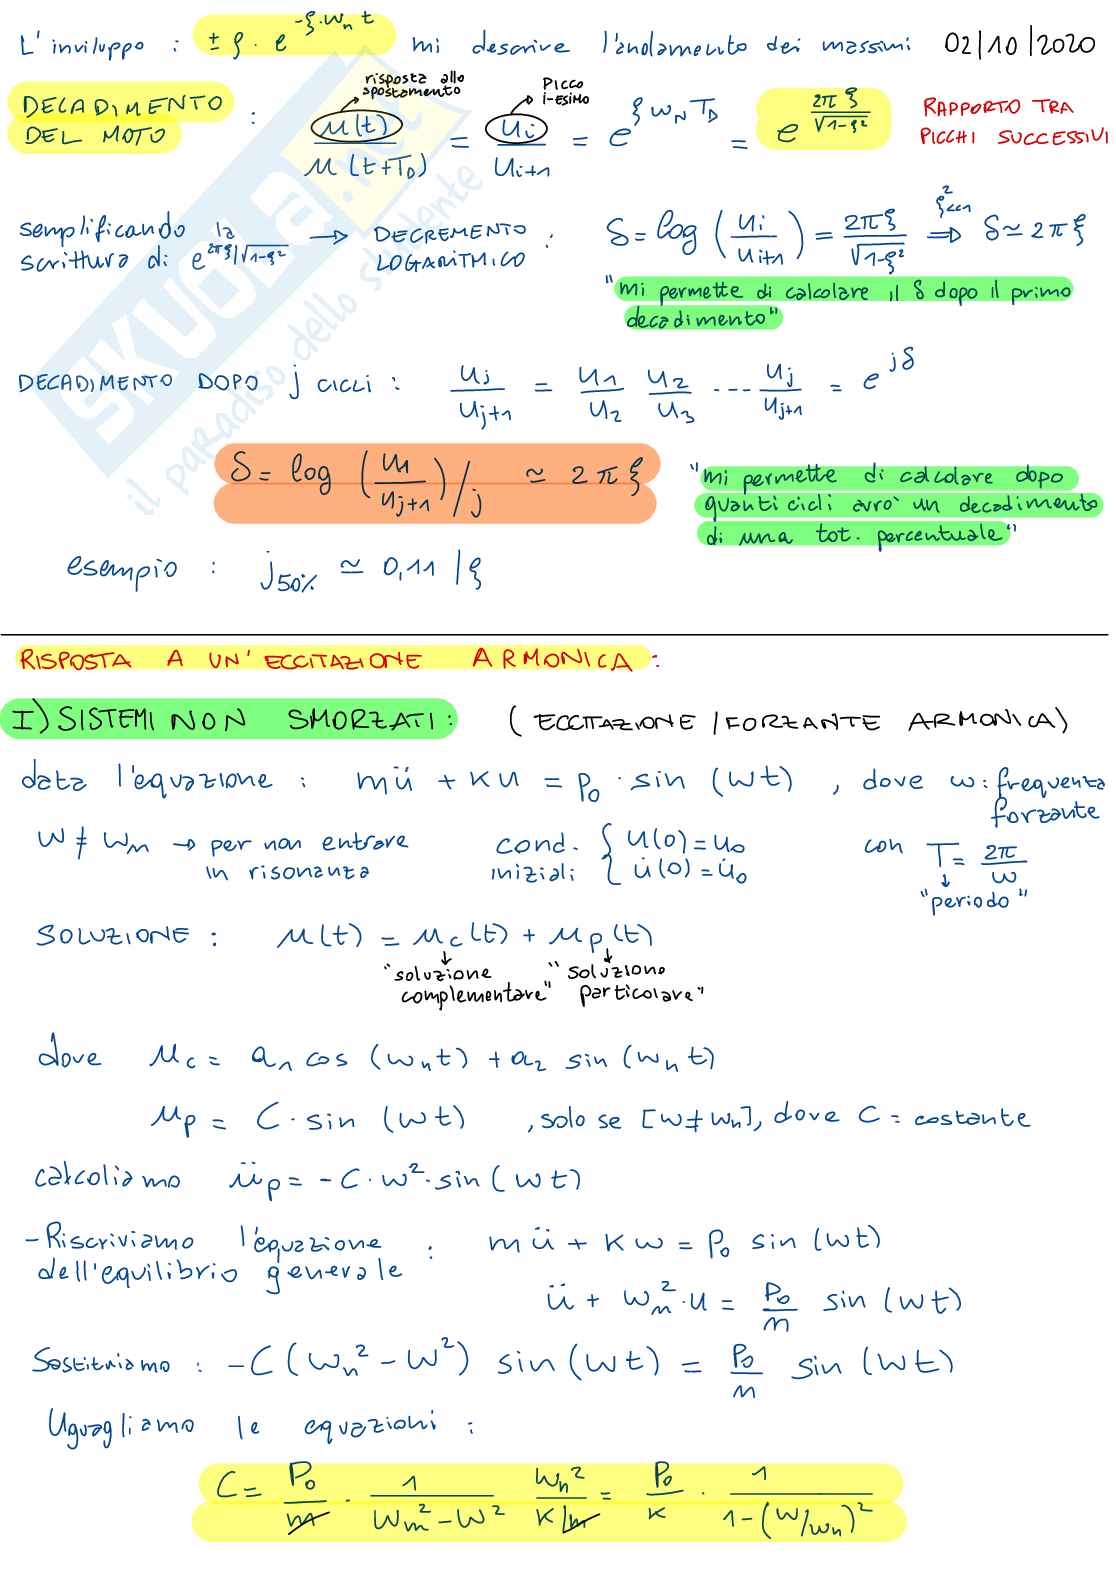 L'inviluppo : ± ρ · e^(-ξ·ωn t) mi descrive l'andamento dei massimi 02/10/2020
DECADIMENTO DEL MOTO : u(t) / u(t+TD) = ui / ui+1 = e^(ξ ωN TD) = e^(2πξ/√1-ξ²) RAPPORTO TRA PICCHI SUCCESSIVI
risposta allo spostamento
PICCO i-ESIMO
semplificando la scrittura di e^(2πξ/√1-ξ²) → DECREMENTO LOGARITMICO : δ = log (ui/ui+1) = 2πξ/√1-ξ² ⇒ δ ≃ 2πξ
ξ²<<1
"mi permette di calcolare il δ dopo il primo
decadimento"
DECADIMENTO DOPO j CICLI : uj/uj+1 = u1/u2 u2/u3 ... uj/uj+1 = e^(jδ)
δ = log (u1/uj+1)/j ≃ 2πξ
"mi permette di calcolare dopo
quanti cicli avrò un decadimento
di una tot. percentuale"
esempio : j50% ≃ 0,11/ξ
RISPOSTA A UN'ECCITAZIONE ARMONICA :
I) SISTEMI NON SMORZATI : (ECCITAZIONE/FORZANTE ARMONICA)
data l'equazione : mü + Ku = P0 · sin (ωt) , dove ω : frequenza forzante
ω ≠ ωn → per non entrare in risonanza
cond. iniziali { u(0) = u0
u̇(0) = u̇0
con T = 2π/ω
"periodo"
SOLUZIONE : u(t) = uc(t) + up(t)
"soluzione complementare" "soluzione particolare"
dove uc = a1 cos (ωnt) + a2 sin (ωn t)
up = C · sin (ωt) , solo se [ω≠ωn], dove C = costante
calcoliamo üp = -C · ω² · sin(ωt)
- Riscriviamo l'equazione dell'equilibrio generale : mü + Kω = P0 sin (ωt)
ü + ωn² · u = P0/m sin (ωt)
Sostituiamo : -C (ωn² - ω²) sin (ωt) = P0/m sin (ωt)
Uguagliamo le equazioni :
C = P0/m · 1/ωn² - ω² ωn²/K/m = P0/K · 1/1-(ω/ωn)²
SKUOLA.net
il paradiso dello studente